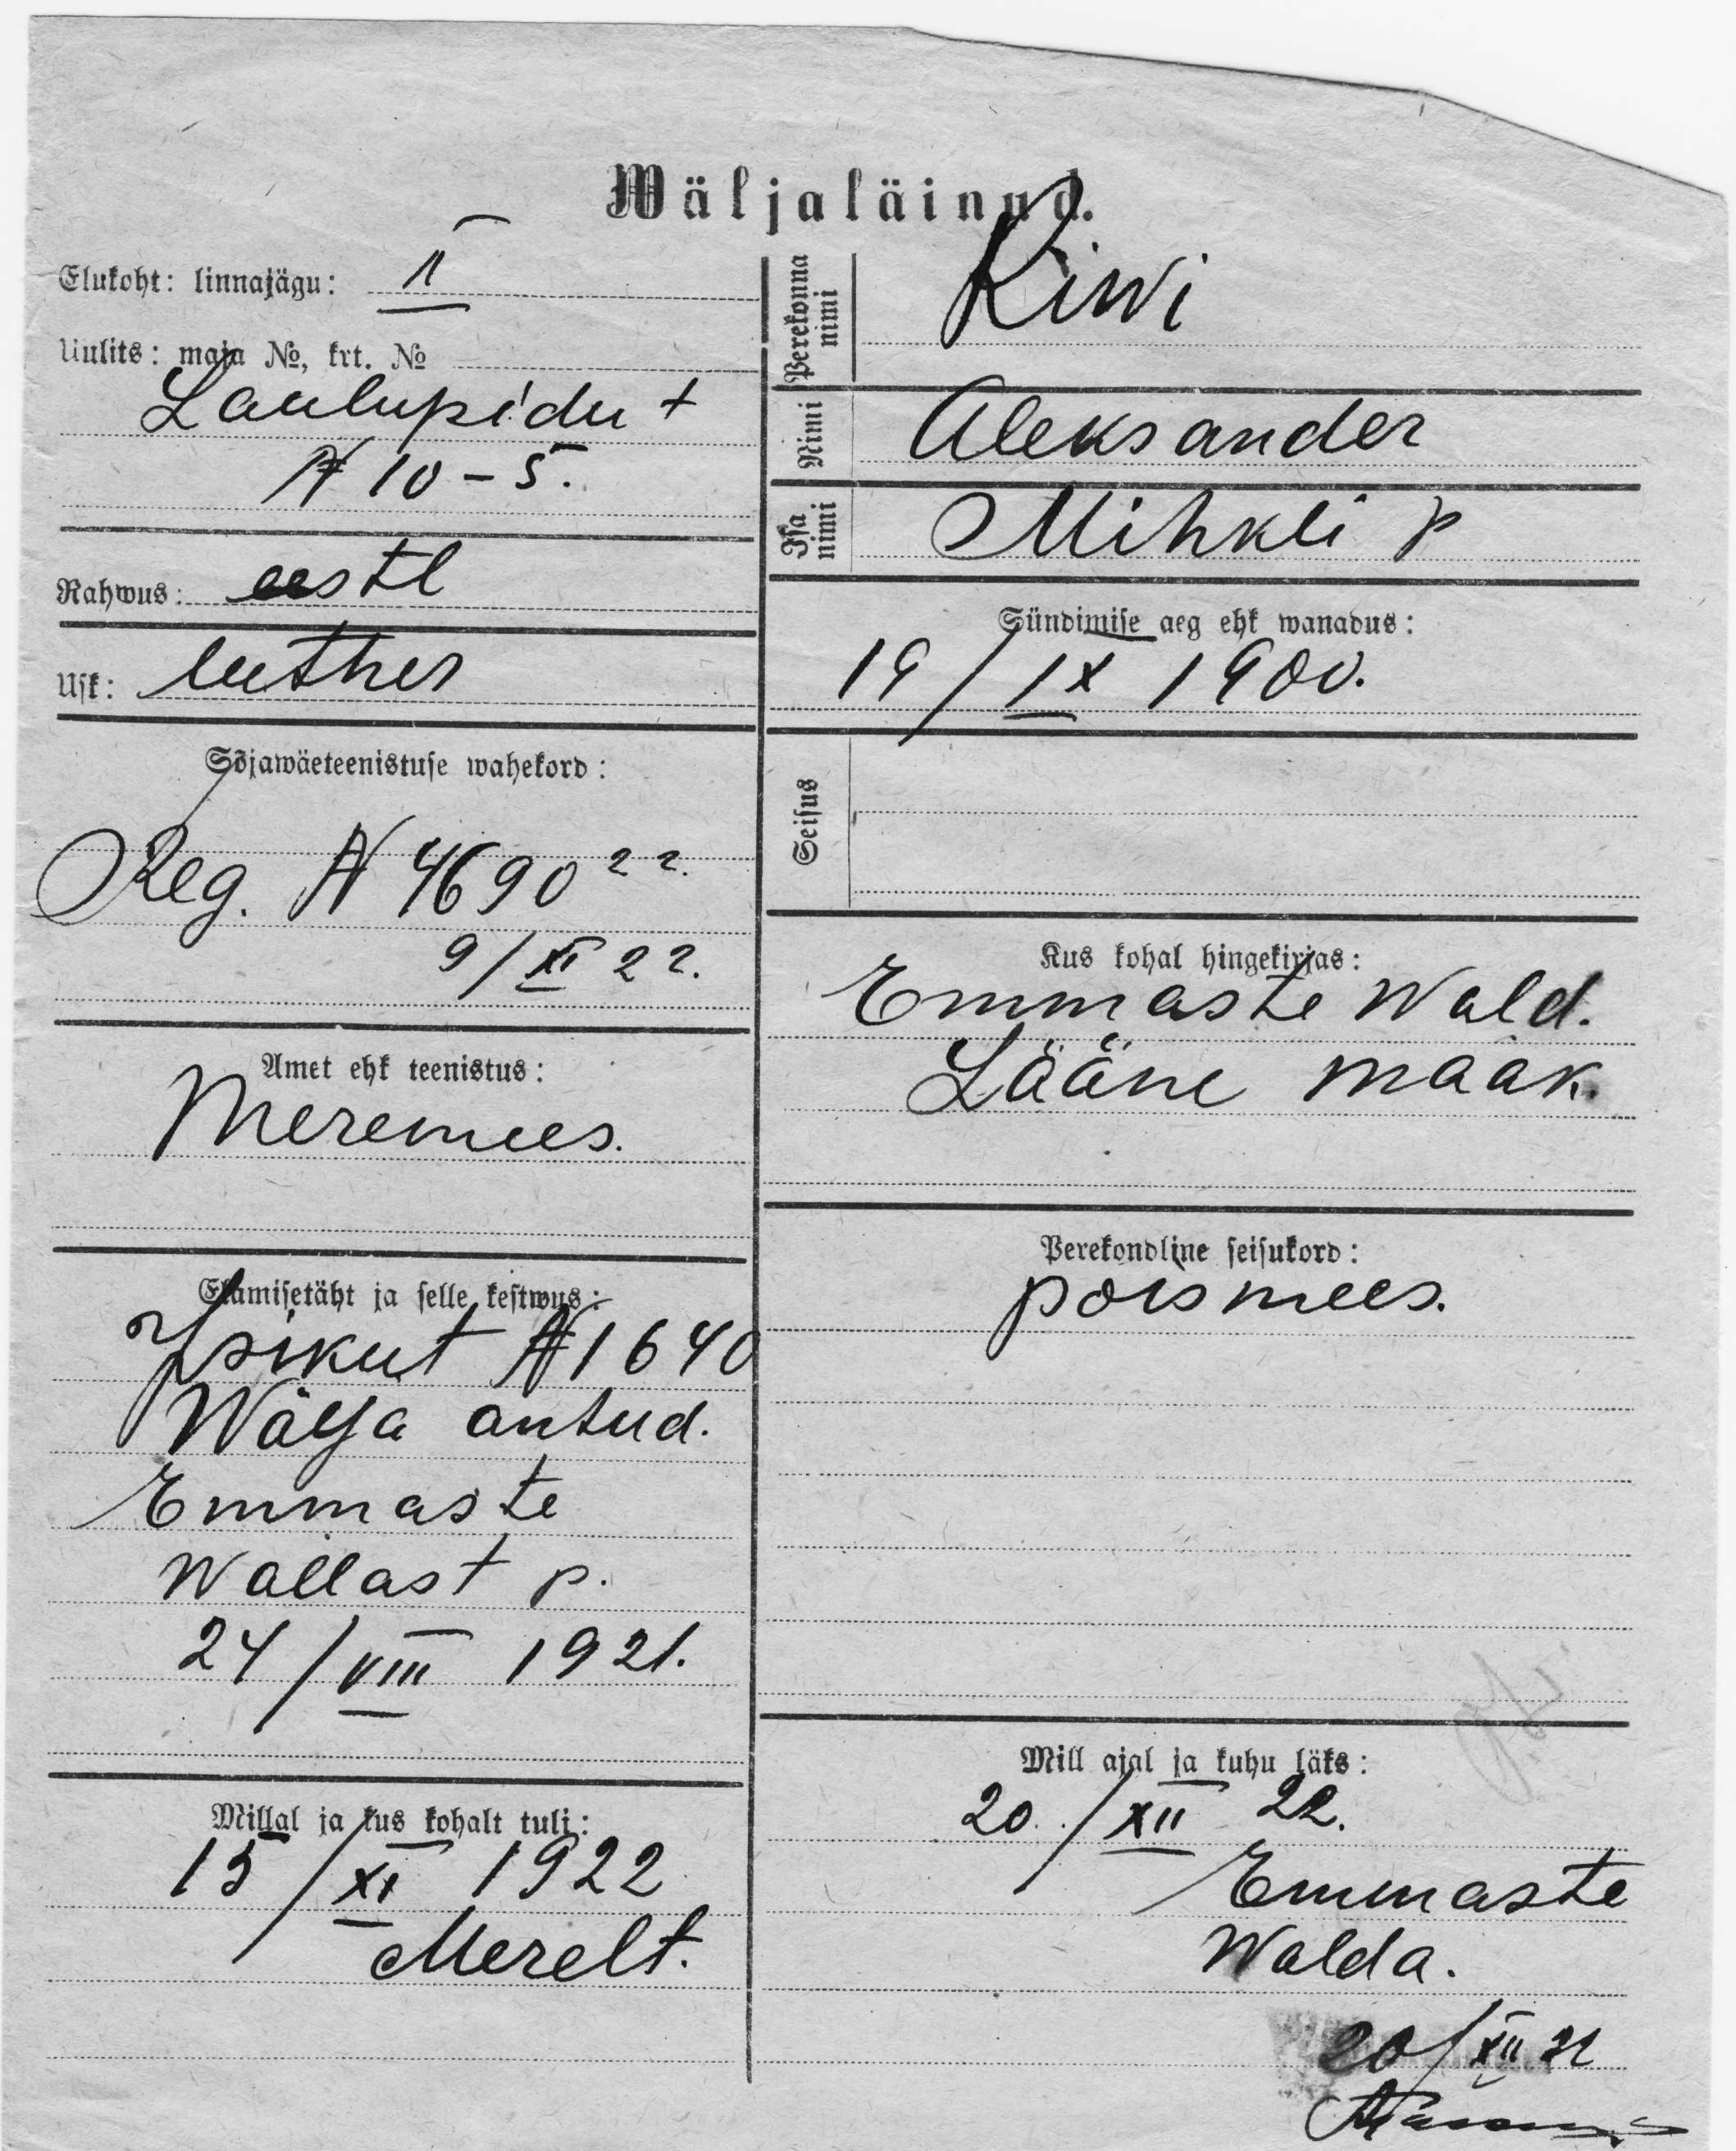 Wäljaläinud.
Elukoht: linnajägu: II
Uulits: maja №, krt. №
Laulupidu t
№ 10 - 5.
Rahwus: eestl
Usk: luther
Sõjawäeteenistuse wahekord:
Reg. № 4690 22.
9/XI 22.
Amet ehk teenistus:
Meremees.
Elamisetäht ja selle kestwus:
Isikut № 1640
Wälja antud.
Emmaste
Wallast p.
24/VIII 1921.
Millal ja kus kohalt tuli:
15/XI 1922
Merelt.
Perekonna nimi Kiwi
Nimi Aleksander
Isa nimi Mihkli p
Sündimise aeg ehk wanadus:
19/IX 1900.
Seisus
Kus kohal hingekirjas:
Emmaste Wald.
Lääne maak.
Perekondline seisukord:
poismees.
Mill ajal ja kuhu läks:
20./XII 22.
Emmaste
Walda.
20/XII 22